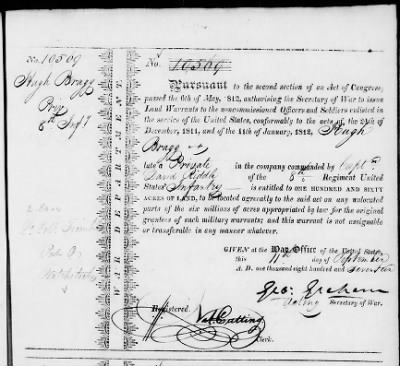 No. 10509
Hugh Bragg
Priv
8th Inft
WAR DEPARTMENT.
No. 10509
Pursuant
to the second section of an Act of Congress,
passed the 6th of May, 1812, authorising the Secretary of War to issue
Land Warrants to the noncommissioned Officers and Soldiers enlisted in
the service of the United States, conformably to the acts of the 24th of
December, 1811, and of the 11th January, 1812, Hugh
Bragg
late a Private in the company commanded by Captn
David Riddle of the 8th Regiment United
States Infantry is entitled to ONE HUNDRED AND SIXTY
ACRES OF LAND, to be located agreeably to the said act on any unlocated
parts of the six millions of acres appropriated by law for the original
grantees of such military warrants; and this warrant is not assignable
or transferable in any manner whatever.
GIVEN at the War Office of the United States,
this 11th day of September
A. D. one thousand eight hundred and seventeen
Geo: Graham
Acting Secretary of War.
Registered
Nl. Cutting
Clerk.